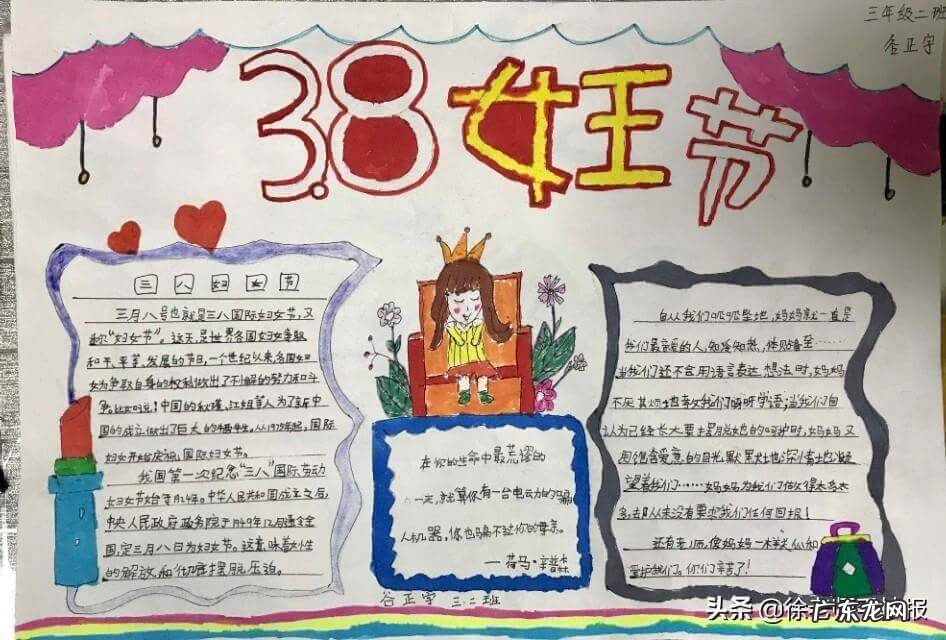 三年级二班
谷正宇
3.8女王节
三八妇女节
三月八号也就是三八国际妇女节,又
称“妇女节”。这天是世界各国妇女争取
和平、平等、发展的节日,一个世纪以来各国妇
女为争取自身的权利做出了不懈的努力和斗
争。比如说:中国的秋瑾、江姐等人为了新中
国的成立做出了巨大的牺牲。从1975年起,国际
妇女开始庆祝国际妇女节。
我国第一次纪念“三八”国际劳动
妇女节始于1924年。中华人民共和国成立之后,
中央人民政府政务院于1949年12月通令全
国,定三月八日为妇女节。这意味着女性
的解放和彻底摆脱压迫。
在你的生命中最荒谬的
一天,就算你有一台电动力的骗
人机器,你也骗不过你的母亲。
——荷马·辛普森
自从我们呱呱坠地,妈妈就一直是
我们最亲爱的人,知冷知热,体贴备至……
当我们还不会用语言表达想法时,妈妈
不厌其烦地教我们咿呀学语;当我们自
认为已经长大要摆脱她的呵护时,妈妈又
用饱含爱意的目光,默默地深情地凝
望着我们……妈妈为我们做次得太多太
多,去从来没有要求我们任何回报!
还有老师,像妈妈一样关心和
爱护我们。你们辛苦了!
谷正宇 三.二班
头条@徐芒东龙网报